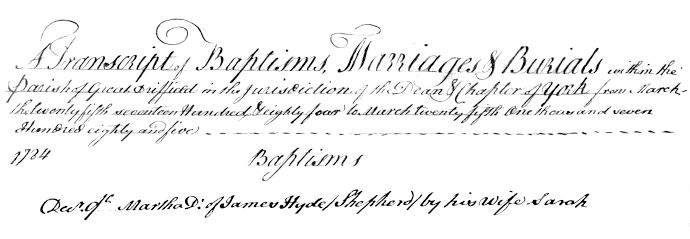 A Transcript of Baptisms, Marriages & Burials within the
Parish of Great Driffield in the Jurisdiction of the Dean & Chapter of York from March
the twenty fifth seventeen Hundred & eighty four to March twenty fifth One thousand and seven
Hundred eighty and five
1784 Baptisms
Decr. 9th. Martha Dr. of James Hyde /Shepherd/ by his Wife Sarah